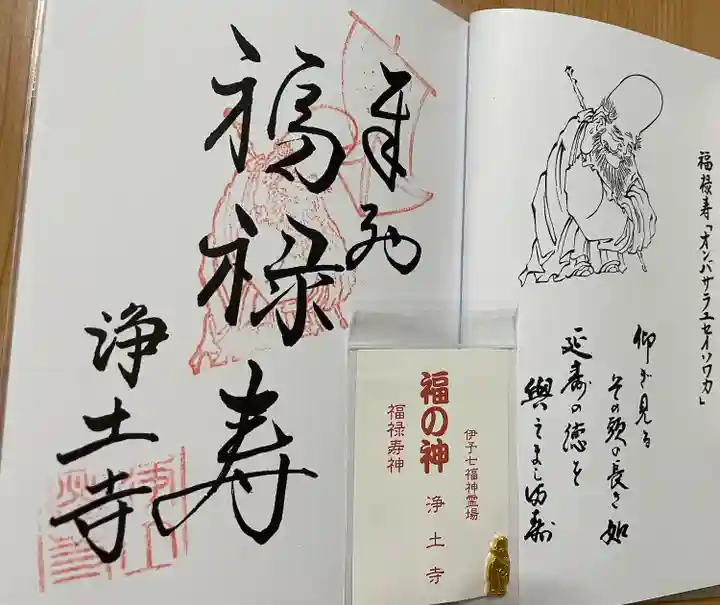 福禄寿「オンバサラユセイソワカ」
仰ぎ見る
その頭の長き如
延寿の徳を
與えまし
奉拝
福禄寿
浄土寺
伊予七福神霊場
福の神 浄土寺
福禄寿神